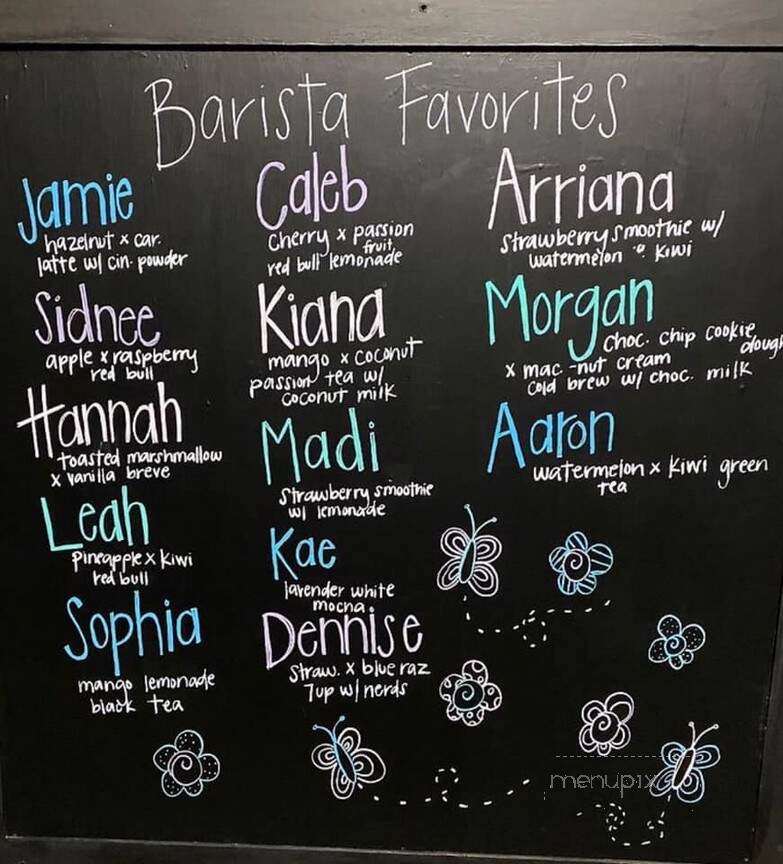 Barista Favorites
Jamie
hazelnut x car.
latte w/ cin. powder
Sidnee
apple x raspberry
red bull
Hannah
toasted marshmallow
x vanilla breve
Leah
Pineapple x kiwi
red bull
Sophia
mango lemonade
black tea
Caleb
Cherry x passion
fruit
red bull lemonade
Kiana
mango x coconut
passion tea w/
coconut milk
Madi
Strawberry smoothie
w/ lemonade
Kae
lavender white
mocha
Dennise
Straw. x blue raz
7up w/ nerds
Arriana
Strawberry smoothie w/
watermelon & kiwi
Morgan
choc. chip cookie
dough
x mac-nut cream
cold brew w/ choc. milk
Aaron
watermelon x kiwi green
tea
menupix